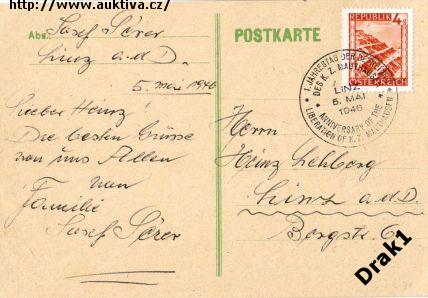 http://www.auktiva.cz/
POSTKARTE
Abs.: Josef Sérer
Linz a.d.D.
5. Mai 1946
Lieber Heinz!
Die besten Grüsse
von uns Allen
Familie
Josef Sérer
REPUBLIK
4g
ÖSTERREICH
1. JAHRESTAG DER
DES K.Z. MAUTHAUSEN
LINZ
5. MAI
1946
ANNIVERSARY OF THE
LIBERATION OF K.Z. MAUTHAUSEN
Herrn
Heinz Lehberg
Linz a.d.D.
Drak1